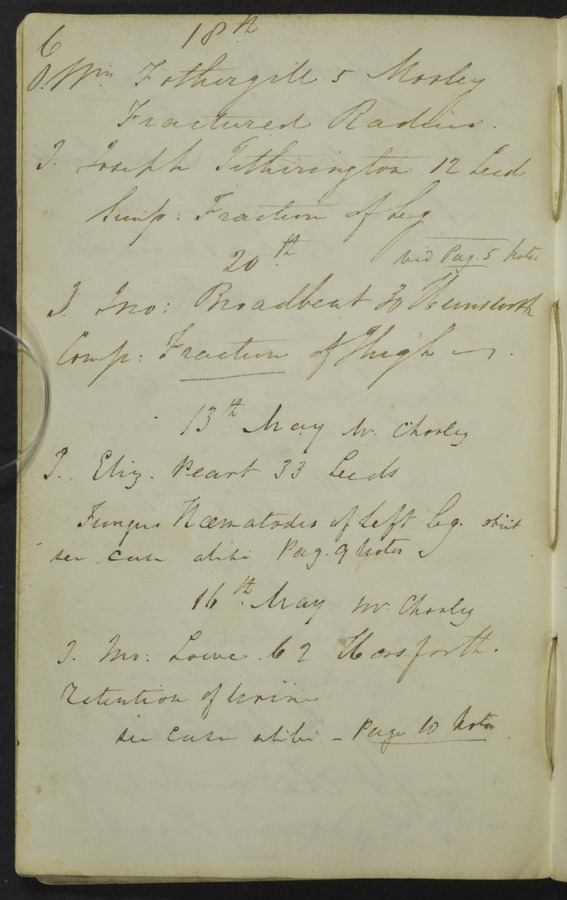 6
18th
O. Wm Fothergill 5 Morley
Fractured Radius.
I. Joseph Titherington 12 Leeds
Simp: Fracture of Leg
20th vid Pag. 5 Notes
I. Jno: Broadbent 30 Hemsworth
Comp: Fracture of Thigh
13th May Mr. Chorley
I. Eliz. Peart 33 Leeds
Fungus Hæmatodes of Left Leg. obiit
see case alibi Pag. 9 Notes
16th May Mr Chorley
I. Jno: Lowe. 62 Horsforth.
Retention of Urine
see case alibi - Page 10 Notes